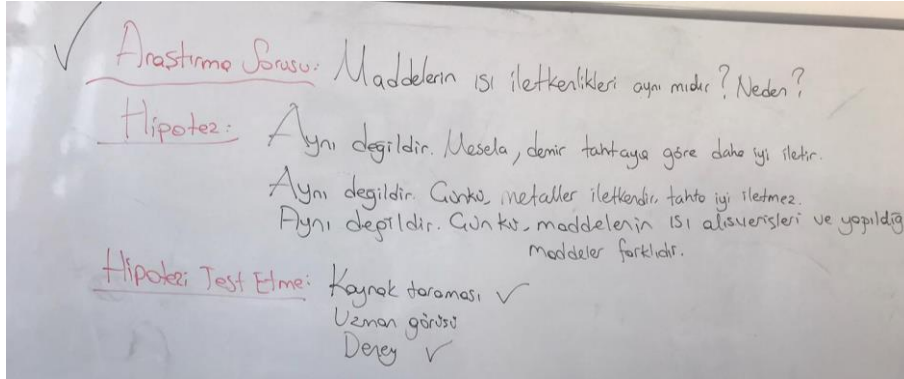 ✓ Araştırma Sorusu: Maddelerin ısı iletkenlikleri aynı mıdır? Neden?
Hipotez: Aynı değildir. Mesela, demir tahtaya göre daha iyi iletir.
Aynı değildir. Çünkü, metaller iletkendir, tahta iyi iletmez.
Aynı değildir. Çünkü, maddelerin ısı alışverişleri ve yapıldığ
maddeler farklıdır.
Hipotezi Test Etme: Kaynak taraması ✓
Uzman görüşü
Deney ✓